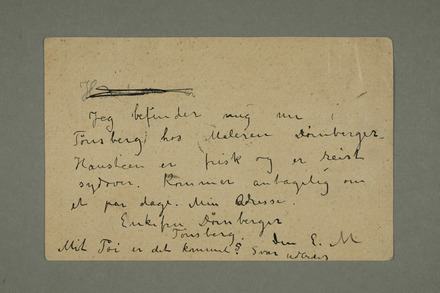 Jeg befinder mig nu i
Tönsberg hos Maleren Dörnberger.
Hansteen er frisk og er reist
sydover. Kommer antagelig om
et par dage. Min Adresse.
Enkefru Dörnberger
Tönsberg.
Din E. M
Mit Töi er det kommet? Svar udbedes